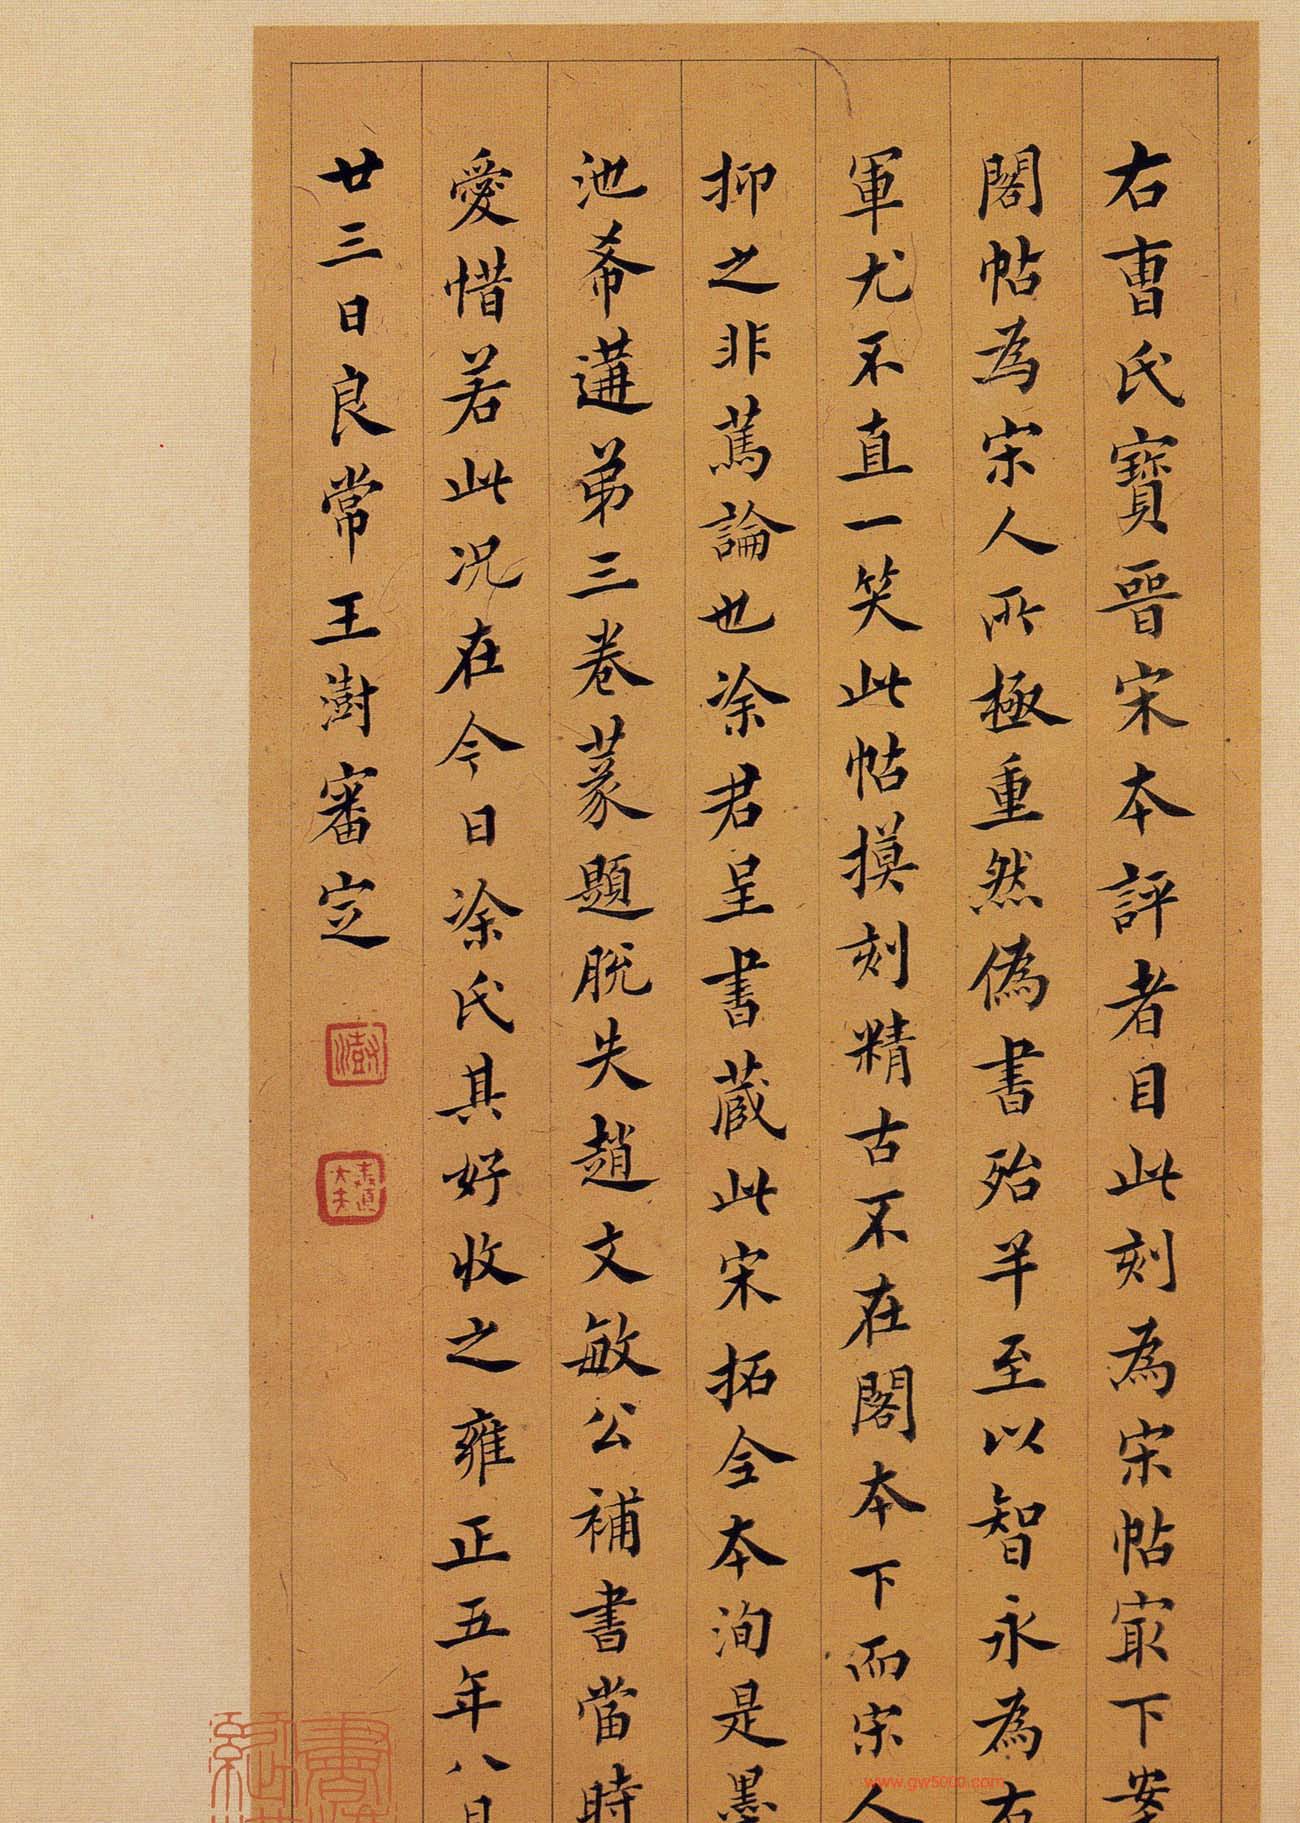 右曹氏寶晉宋本評者目此刻為宋帖冣下案
閣帖為宋人所極重然偽書殆半至以智永為右
軍尤不直一笑此帖摸刻精古不在閣本下而宋人
抑之非篤論也涂君呈書藏此宋拓全本洵是墨
池希遘弟三卷篆題脫失趙文敏公補書當時
愛惜若此況在今日涂氏其好收之雍正五年八月
廿三日良常王澍審定
澍
www.gw5000.com